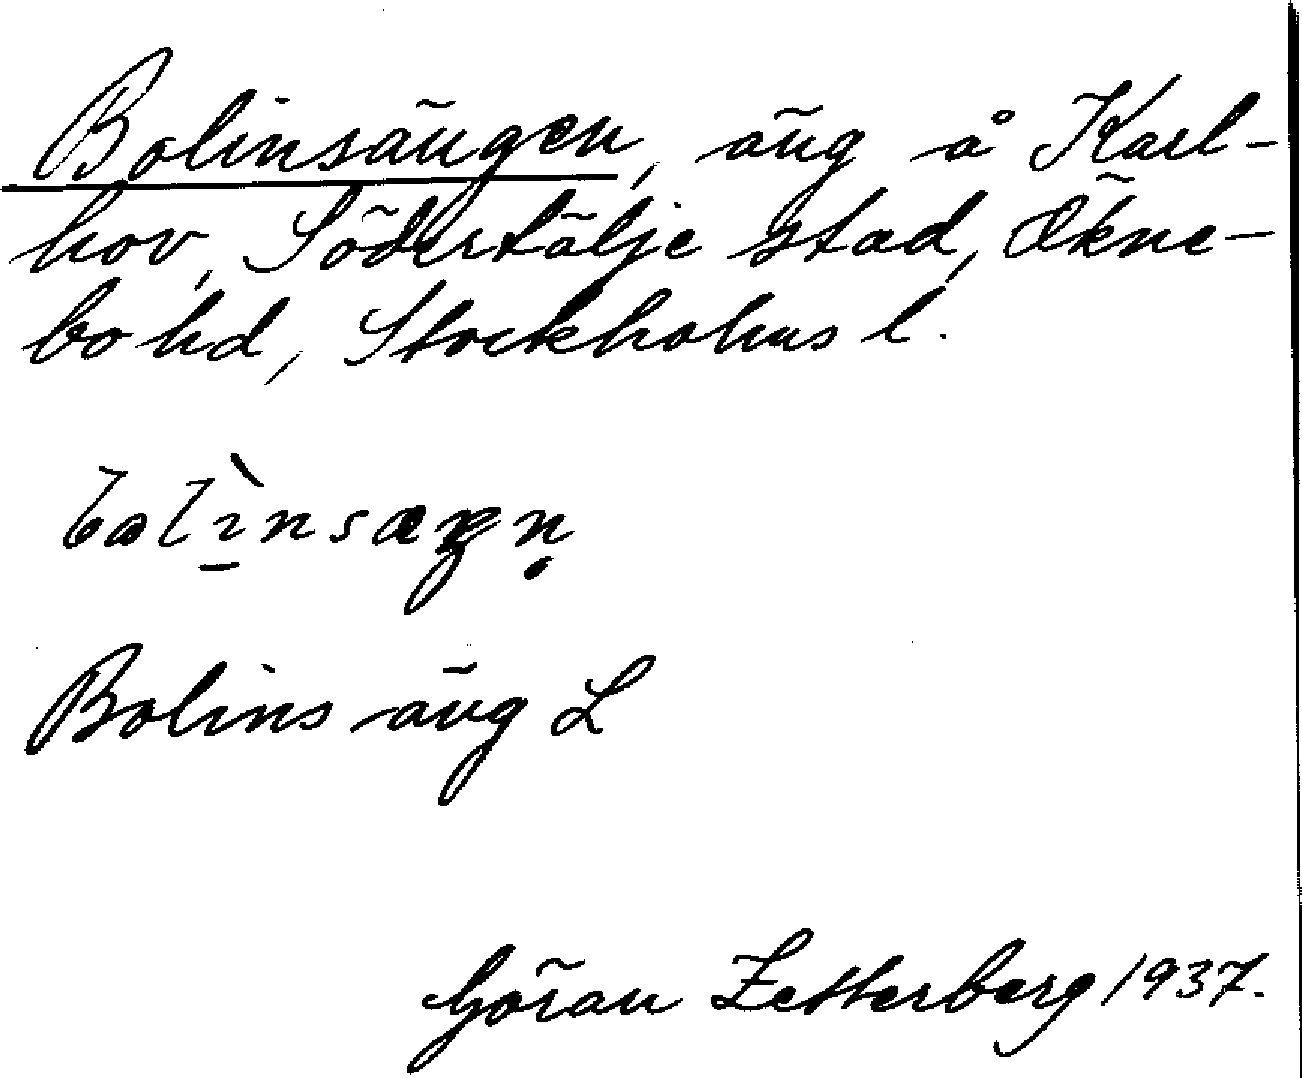 Bolinsängen, äng å Karl-
hov, Södertälje stad, Økne-
bo hd, Stockholms l.
Bolins äng L
Göran Zetterberg 1937.